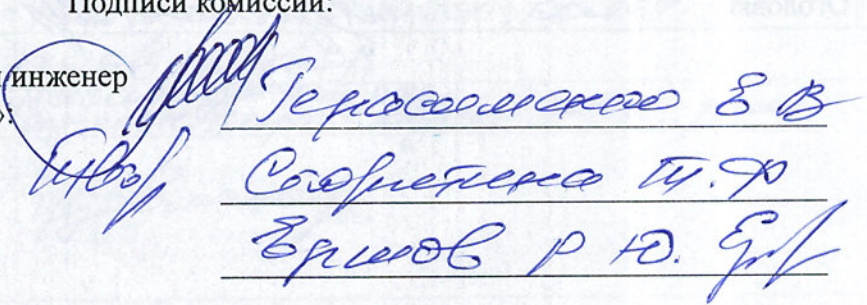 Подписи комиссии:
инженер
Герасименко Е В
Т.Ф
Ершов Р Ю.